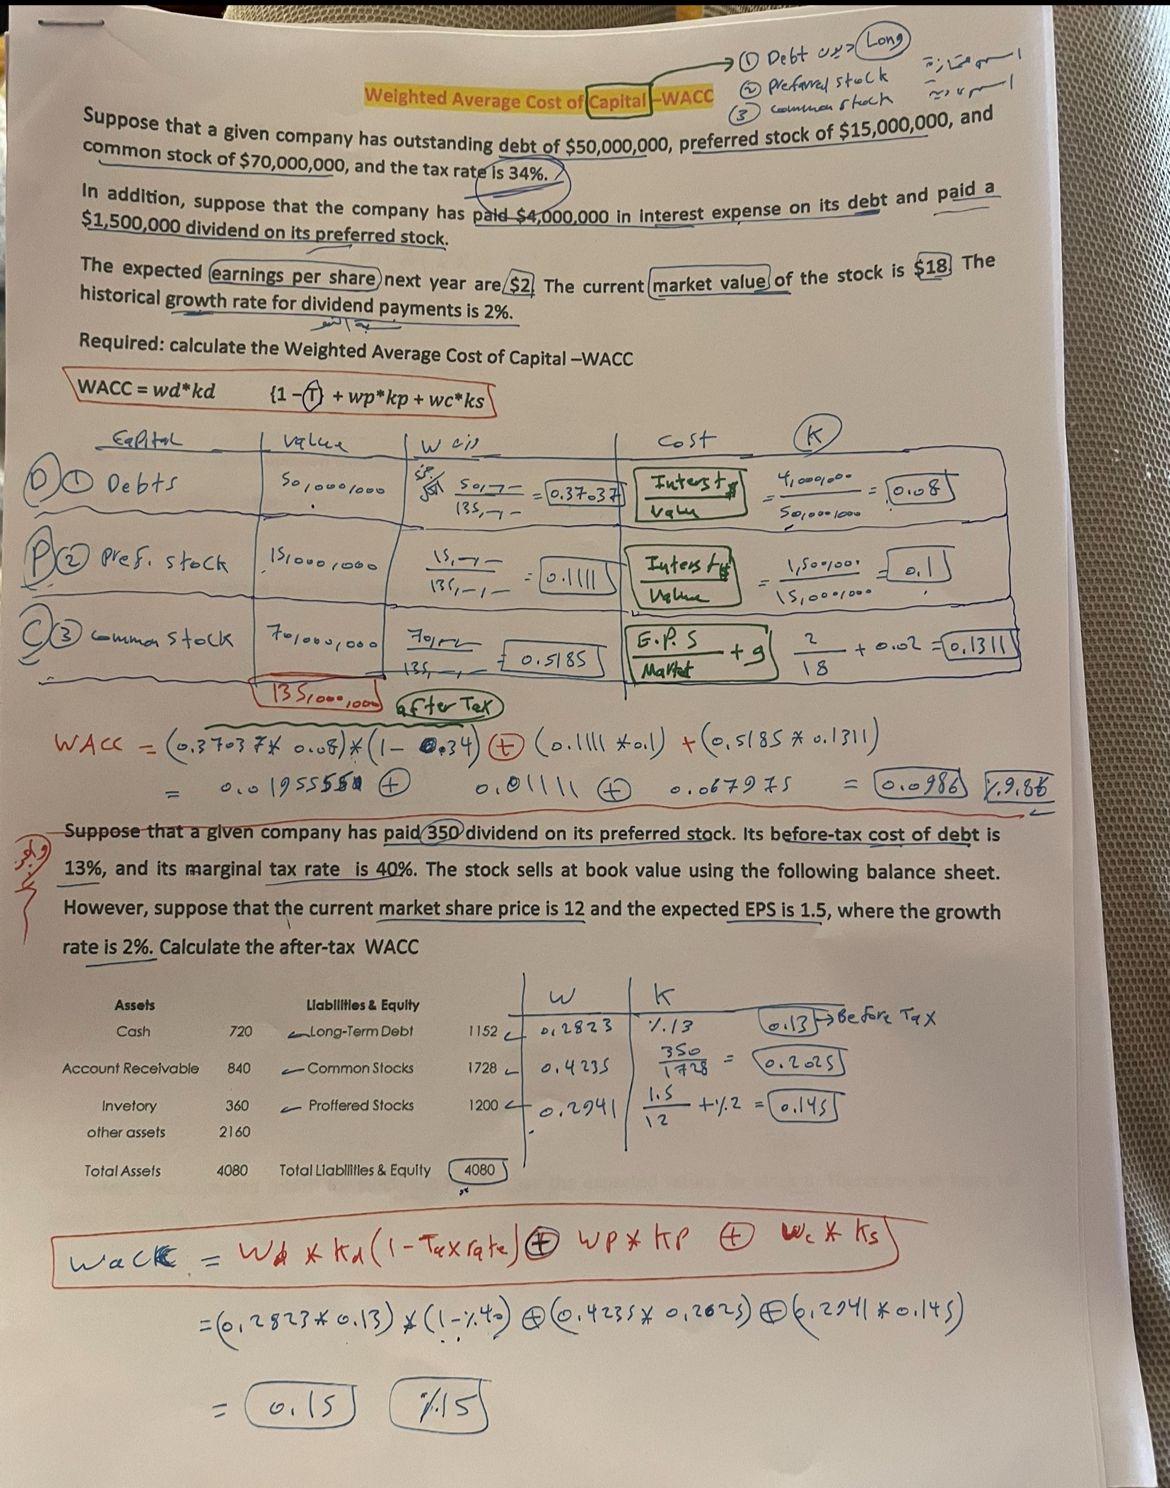 ① Debt ديون Long
② Preferred stock اسهم ممتازة
③ common stock
Weighted Average Cost of Capital –WACC
Suppose that a given company has outstanding debt of $50,000,000, preferred stock of $15,000,000, and
common stock of $70,000,000, and the tax rate is 34%.
In addition, suppose that the company has paid $4,000,000 in interest expense on its debt and paid a
$1,500,000 dividend on its preferred stock.
The expected earnings per share next year are $2. The current market value of the stock is $18. The
historical growth rate for dividend payments is 2%.
Required: calculate the Weighted Average Cost of Capital –WACC
WACC = wd*kd {1 –T} + wp*kp + wc*ks
Capital value W وزن cost K
D ① Debts 50,000,000 50,-,- / 135,-,- = 0.37037 Interst $ / value = 4,000,000 / 50,000,000 = 0.08
P ② Pref. stock 15,000,000 15,-,- / 135,-,- = 0.1111 Interst $ / Value = 1,500,000 / 15,000,000 = 0.1
C ③ common stock 70,000,000 70,-,- / 135,-,- = 0.5185 E.P.S / Market + g 2 / 18 + 0.02 = 0.1311
135,000,000 after Tax
WACC = (0.37037 * 0.08) * (1 - 0.34) + (0.1111 * 0.1) + (0.5185 * 0.1311)
= 0.0195555 + 0.01111 + 0.067975 = 0.0986 %9.86
Suppose that a given company has paid 350 dividend on its preferred stock. Its before-tax cost of debt is
13%, and its marginal tax rate is 40%. The stock sells at book value using the following balance sheet.
However, suppose that the current market share price is 12 and the expected EPS is 1.5, where the growth
rate is 2%. Calculate the after-tax WACC
W K
Assets Liabilities & Equity
Cash 720 Long-Term Debt 1152 0.2823 %13 0.13 → Before Tax
Account Receivable 840 Common Stocks 1728 0.4235 350 / 1728 = 0.2025
Invetory 360 Proffered Stocks 1200 0.2941 1.5 / 12 + %2 = 0.145
other assets 2160
Total Assets 4080 Total Liabilities & Equity 4080
WACC = Wd * Kd (1 - Tax rate) + WP * KP + Wc * Ks
= (0.2823 * 0.13) * (1 - %40) + (0.4235 * 0.2025) + (0.2941 * 0.145)
= 0.15 %15